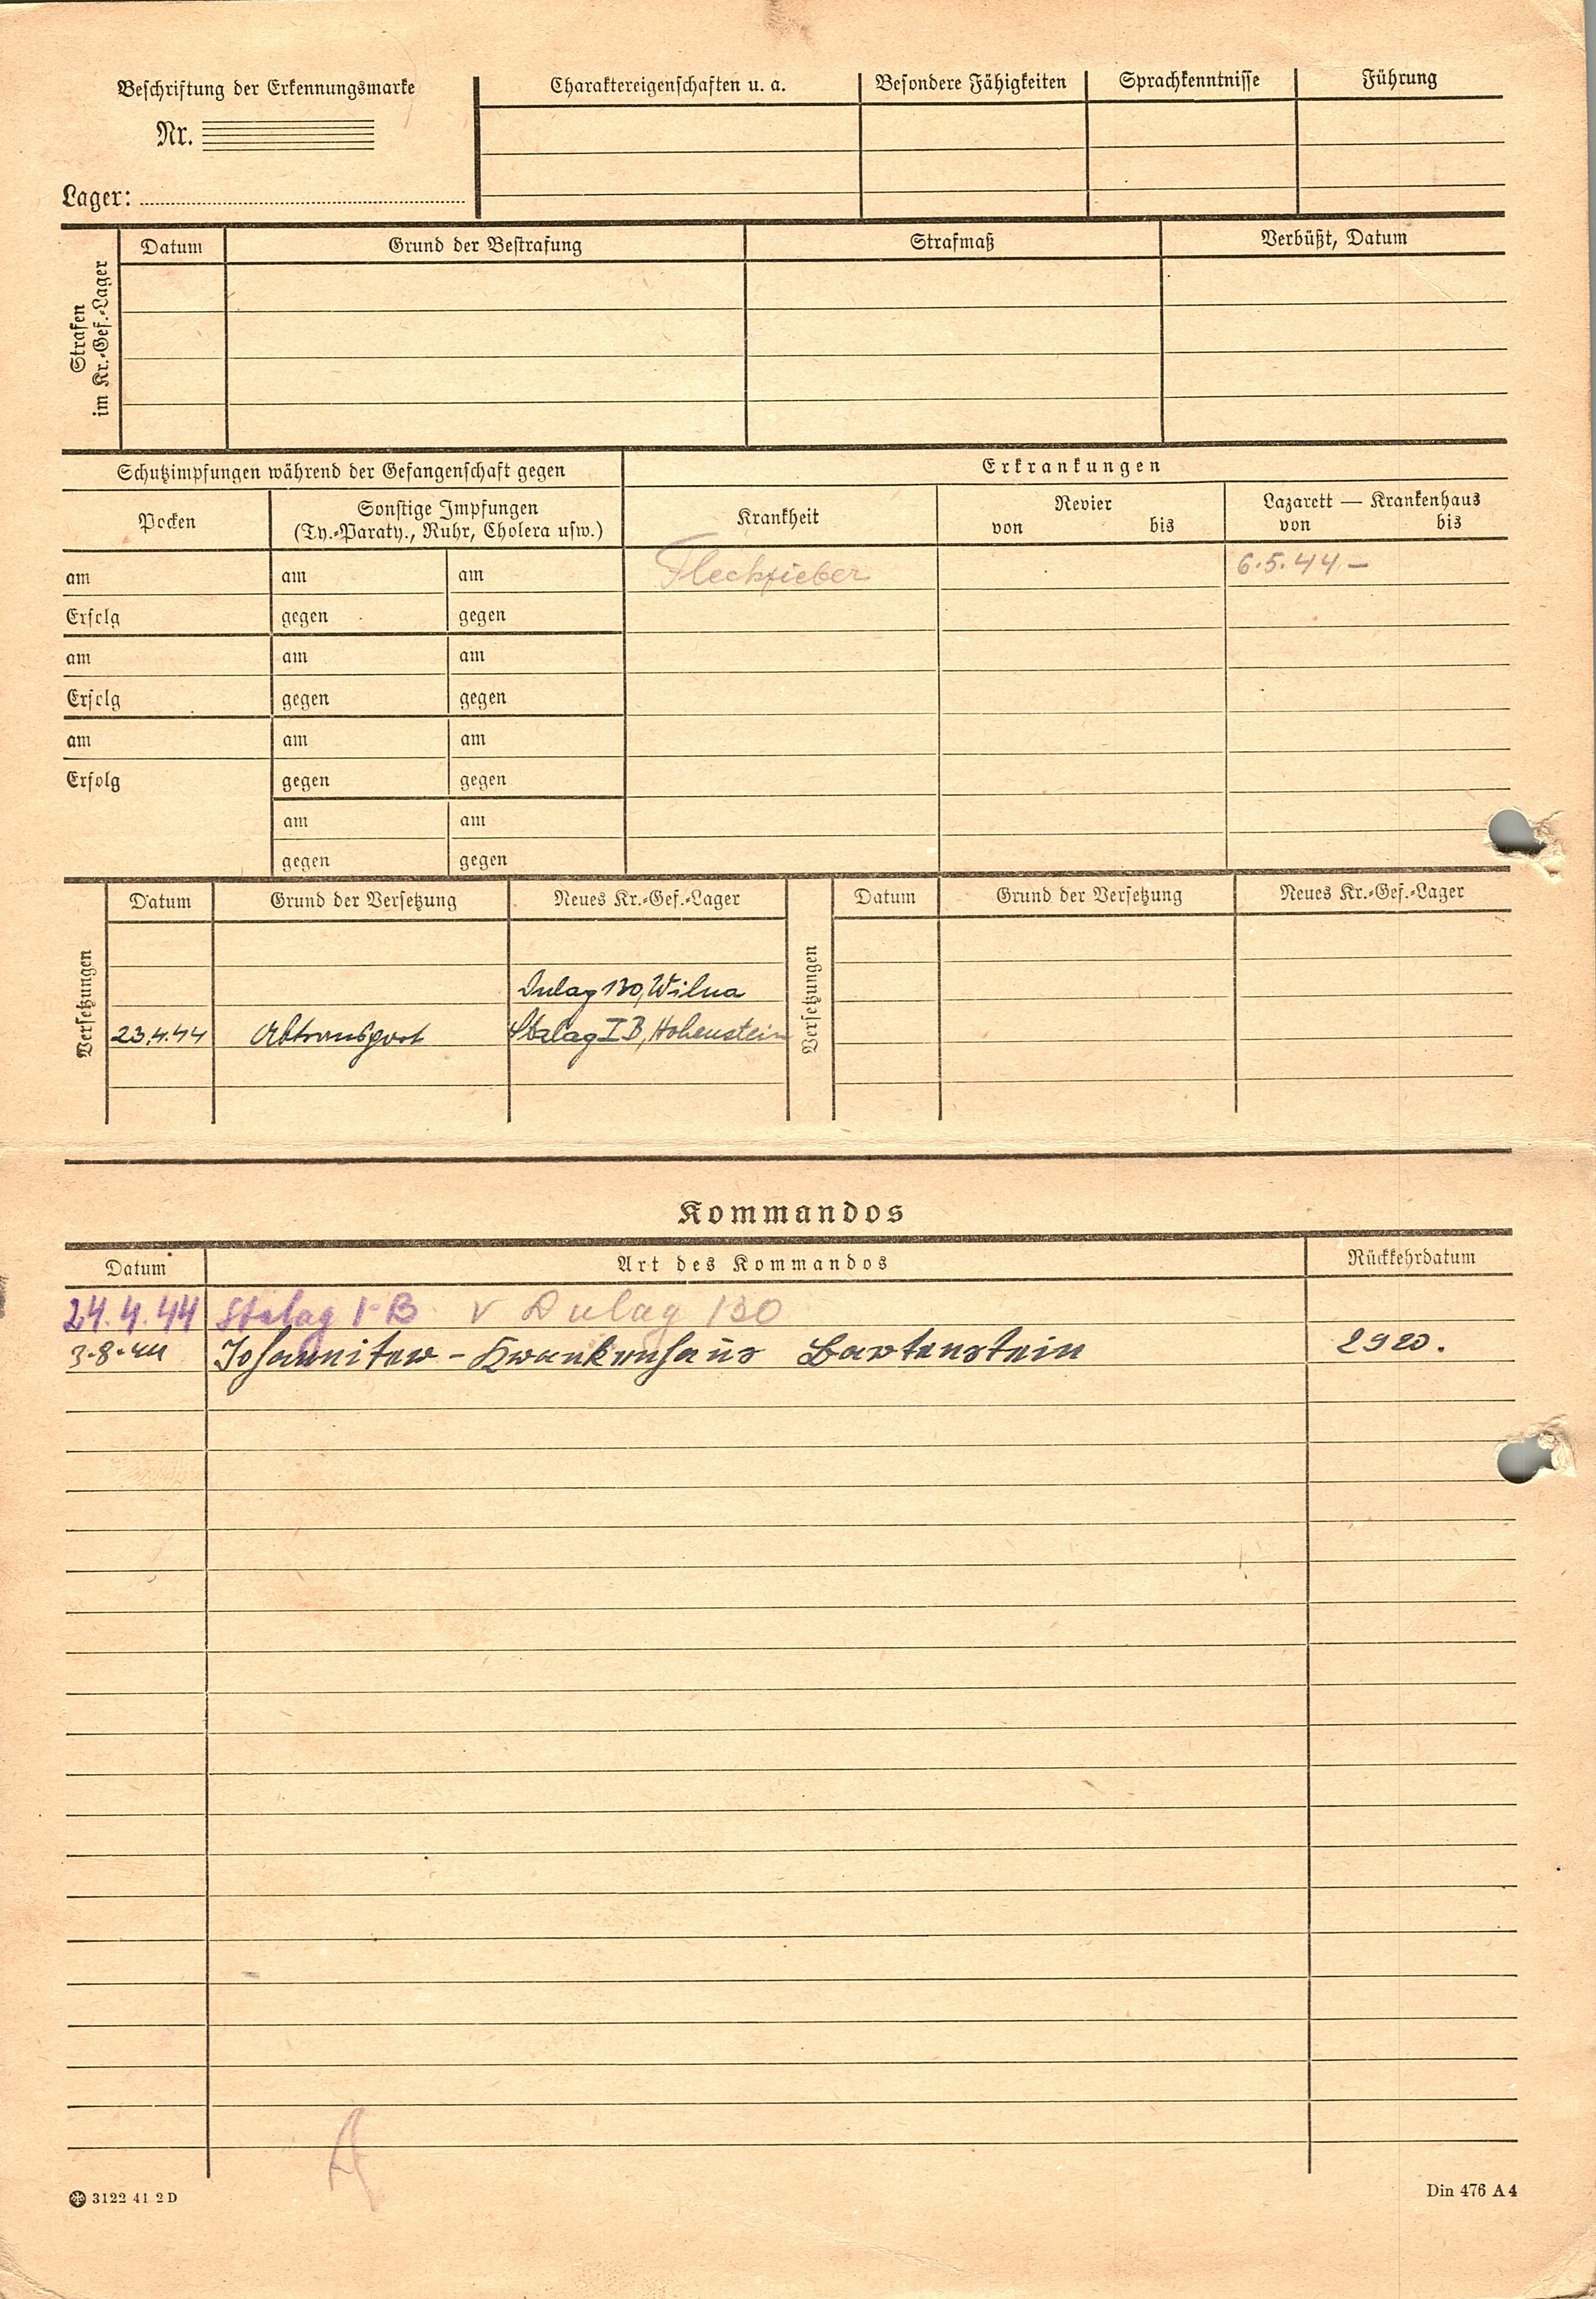 Beschriftung der Erkennungsmarke
Nr.
Lager:
Charaktereigenschaften u. a. Besondere Fähigkeiten Sprachkenntnisse Führung
Strafen
im Kr.-Gef.-Lager
Datum Grund der Bestrafung Strafmaß Verbüßt, Datum
Schutzimpfungen während der Gefangenschaft gegen
Erkrankungen
Pocken
Sonstige Impfungen
(Ty.-Paraty., Ruhr, Cholera usw.)
Krankheit
Revier
von bis
Lazarett — Krankenhaus
von bis
am am am Fleckfieber 6.5.44 –
Erfolg gegen gegen
am am am
Erfolg gegen gegen
am am am
Erfolg gegen gegen
am am
gegen gegen
Versetzungen
Datum Grund der Versetzung Neues Kr.-Gef.-Lager
Dulag 130, Wilna
23.4.44 Abtransport Stalag I B, Hohenstein
Versetzungen
Datum Grund der Versetzung Neues Kr.-Gef.-Lager
Kommandos
Datum Art des Kommandos Rückkehrdatum
24.4.44 Stalag I-B. v Dulag 130
3.8.44 Johanniter-Krankenhaus Bartenstein 2920.
A
3122 41 2 D
Din 476 A 4